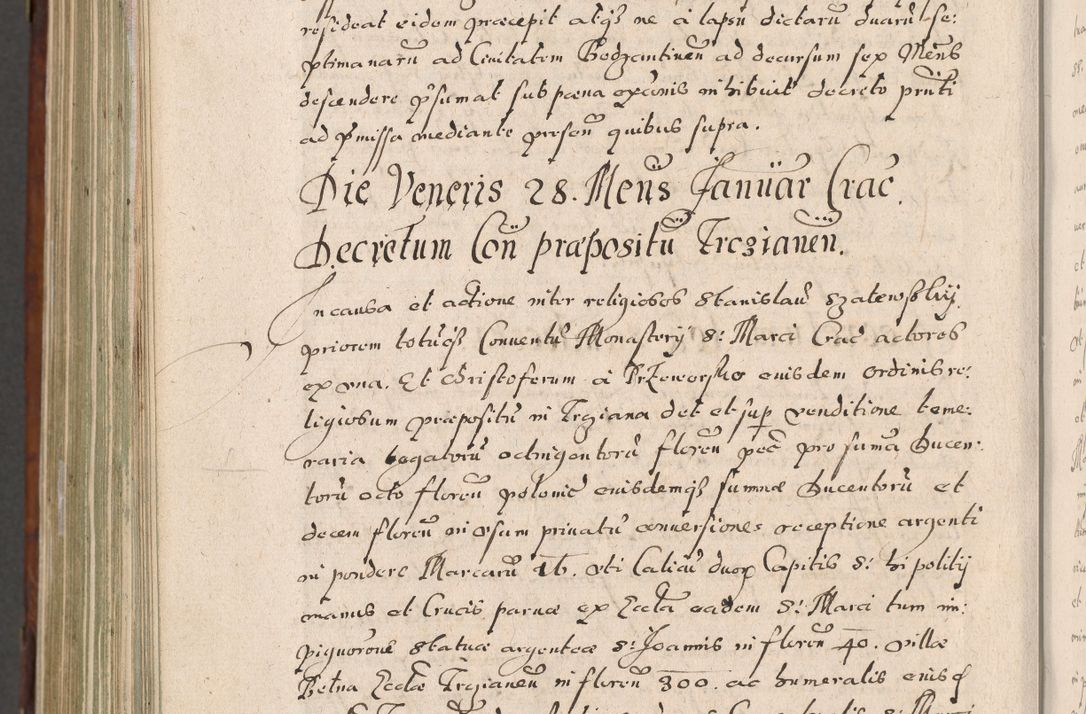 resideat eidem præcepit atq₃ ne à lapsu dictarũ duarũ se:
ptimanarũ ad Ciuitatem Bodzantineñ ad decursum sex Meñs
descendere p̃sumat sub pæna exc̃onis inhibuit decreto pr̃nti
ad p̃missa mediante preseñ quibus supra.
Die Veneris 28. Meñs Januar̃ Crac̃.
Decretum Coñ præpositũ Trczianeñ.
In causa et actione inter religiosos Stanislaũ Szatewskij
priorem totũq₃ Conuentũ Monasterij S: Marci Crac̃ actores
ex vna. Et Christoferum à eiusdem ordinis re:
ligiosum præpositũ in Trzciana de et sup venditione teme:
raria legatorũ octingentorũ floreñ pec̃ pro sum̃a Ducen:
torũ octo floreñ polonic̃ eiusdemq₃ sum̃æ Ducentorũ et
decem floreñ in vsum priuatũ conuersione: receptione argenti
in pondere Marcarũ 16. vti Calicũ duoꝝ Capitis S: hipolitij
manus et Crucis paruæ ex Eccl̃a eadem S: Marci tum im:
pignorõne statuæ argenteæ S: Joannis in floreñ 40. villæ
Eccl̃æ Trzcianeñ in floreñ 300. ac humeralis eiusq₃